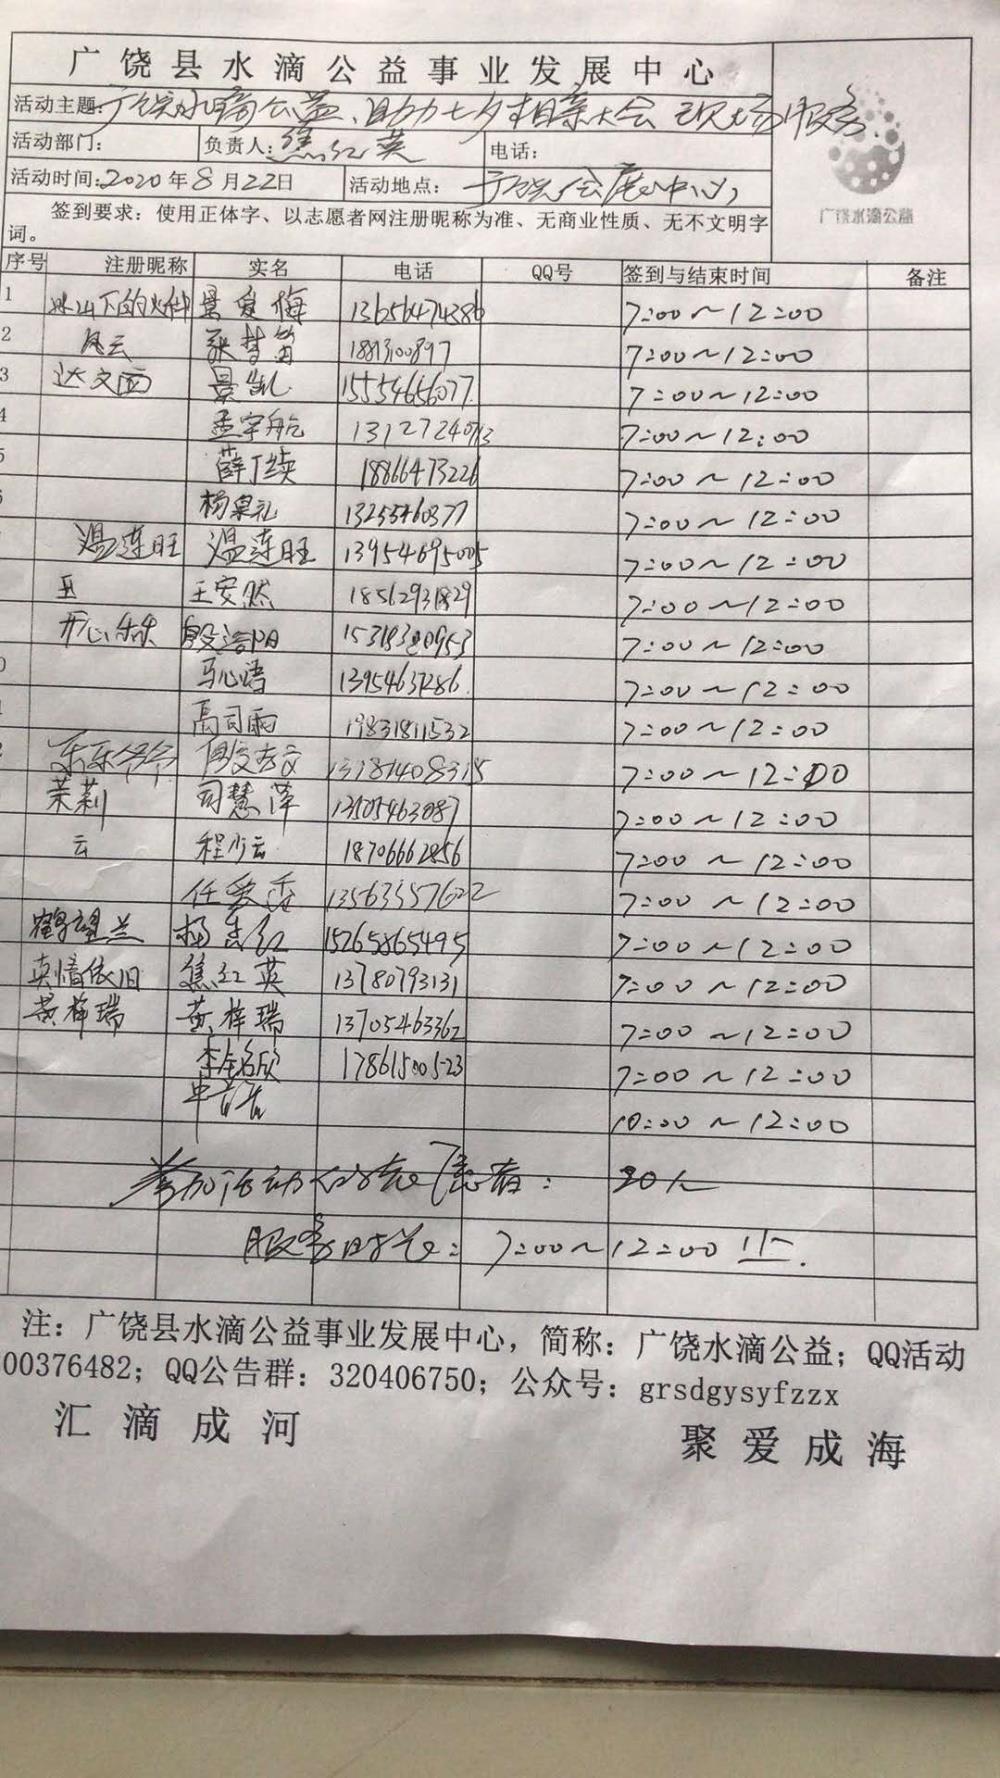 广饶县水滴公益事业发展中心
活动主题:广饶水滴公益、助力七夕相亲大会现场服务
活动部门: 负责人:焦红英 电话:
活动时间:2020年8月22日 活动地点: 广饶会展中心
广饶水滴公益
签到要求：使用正体字、以志愿者网注册昵称为准、无商业性质、无不文明字
词。
序号 注册昵称 实名 电话 QQ号 签到与结束时间 备注
1 冰山下的火种 景 13656474386 7:00～12:00
2 风云 张梦笛 1881300897 7:00～12:00
3 达文西 景凯 15554656077 7:00～12:00
孟宇航 13127240 7:00～12:00
薛丁续 18866473226 7:00～12:00
杨杲礼 13255460377 7:00～12:00
温连旺 温连旺 13954695005 7:00～12:00
王安然 18562931829 7:00～12:00
开心乐乐 殷浩阳 15318380953 7:00～12:00
马心语 13954631286 7:00～12:00
高司雨 19831811532 7:00～12:00
乐乐爷爷 7:00～12:00
茉莉 司慧萍 13505463087 7:00～12:00
云 程少云 18706662856 7:00～12:00
任爱香 13563557622 7:00～12:00
鹤望兰 杨杰红 15265865495 7:00～12:00
真情依旧 焦红英 13780793131 7:00～12:00
黄梓瑞 黄梓瑞 13705463362 7:00～12:00
李铭欣 17861500523 7:00～12:00
10:00～12:00
参加活动的志愿者： 20人
服务时长：7:00～12:00 止.
注：广饶县水滴公益事业发展中心，简称：广饶水滴公益；QQ活动
00376482；QQ公告群：320406750；公众号：grsdgysyfzzx
汇滴成河 聚爱成海